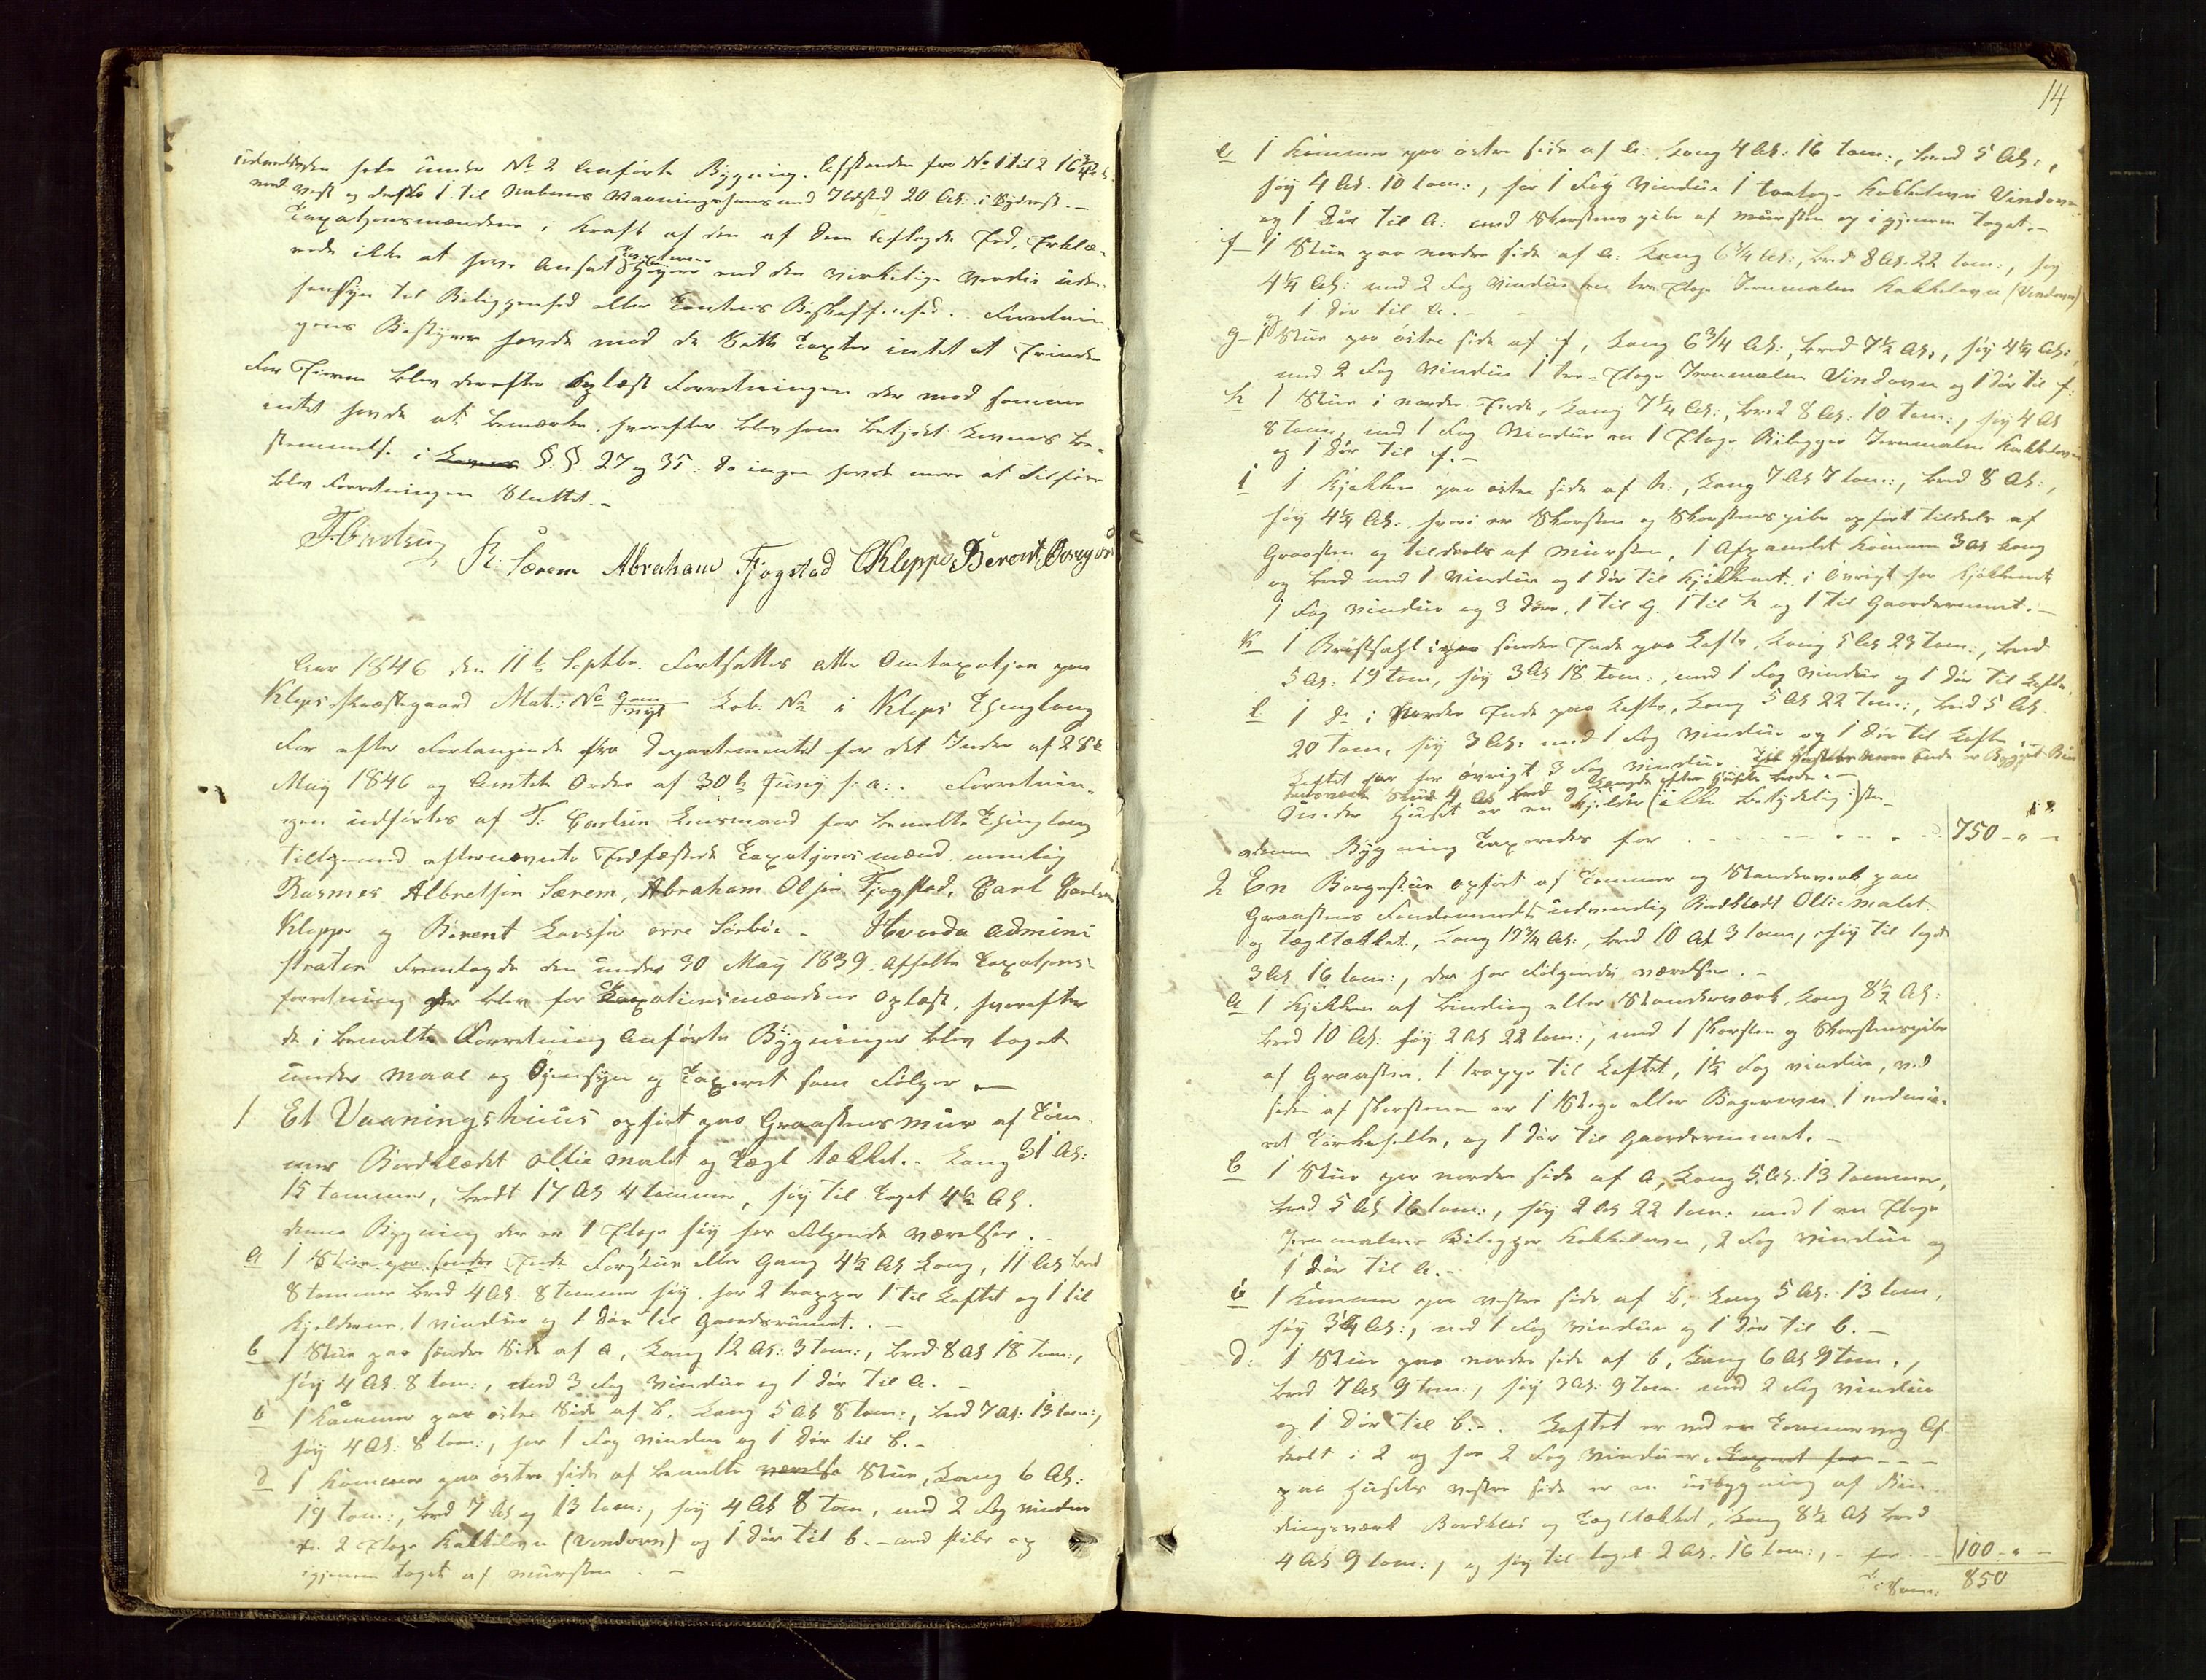 hele under No 2 anførte Bygning. Afstanden fra No 1 til 2 16
mod Vest og dessto 1 til Naboens Vaaningshuus med Ildsted 20 Al: i Sydvest. -
Taxationsmændene i Kraft af den af dem aflagde Eed, Erklæ-
rede ikke at have ansat Høyere end den virkelige Værdie uden
hensyn til Beliggenhed eller Tomtens Beskaffenhed. Forretnin-
gens Bestyrer havde mod de Satte Taxter intet at Erindre
For Eieren blev derefter oplæst Forretningen der mod samme
intet havde at bemærke. hvorefter blev ham betydet Lovens be-
stemmelse i §.§ 27 og 35. Da ingen havde mere at Tilføre
blev Forretningen Sluttet. -
R: Særem Abraham Fjogstad CKleppe Berent
Aar 1846 den 11te Septbr. Fortsattes atter Omtaxation paa
Kleps Præstegaard Mat: No Lob: No i Kleps Thinglaug
For efter Forlangende fra Departementet for det Indre af 28de
May 1846 og Amtets Ordre af 30te Juny s: a:. Forretnin-
gen udførtes af T: Lensmand for bemelte Thinglaug
Tilligemed efternævnte Edfæstede Taxationsmænd nemlig
Rasmus Albretsen Særem, Abraham Olsen Fjogstad, Carl Carlsen
Kleppe og Berent Larsen Sørbøe. - Hvorda admini
strator Fremlagde den under 30 May 1839 Afholte Taxations-
forretning der blev for Taxationsmændene oplæst, hvorefter
de i bemelte Forretning Anførte Bygninger blev taget
under Maal og Øiensyn og Taxeret som Følger -
1 Et Vaaningshuus opført paa Graasteensmuur af Tøm-
mer Bordklædt olliemalet og Tægl tækket. - Lang 31 Al:
15 tommer, bredt 17 Al 4 tommer, høy til Taget 4½ Al.
denne Bygning der er 1 Etage høy har Følgende værelser. -
a 1 Stue paa søndre Ende Forstue eller Gang 4½ Al Lang, 11 Al bred
8 tommer bred 4 Al: 8 tommer høy. har 2 trapper 1 til Loftet og 1 til
Kjelderne, 1 vindue og 1 Dør til Gaardsrummet. -
b 1 Stue paa søndre Side af a, Lang 12 Al: 3 tom:, bred 8 Al 18 tom:,
høy 4 Al: 8 tom:, med 3 Fag Vindue og 1 Dør til a. -
c 1 Kammer paa østre Side af b, Lang 5 Al 8 tom:, bred 7 Al: 13 tom:,
høy 4 Al: 8 tom:, har 1 Fag vindue og 1 Dør til b. -
d 1 Kammer paa østre side af bemelte værelse Stue, Lang 6 Al:
19 tom:, bred 7 Al og 13 tom:, høy 4 Al 8 tom, med 2 Fag vindue
en 2 Etage Kakkelovn (Vindovn) og 1 Dør til b. - med Pibe op
igjenem taget af muursteen. -
14
e 1 Kammer paa østre side af a: Lang 4 Al: 16 tom:, bred 5 Al:,
høy 4 Al. 10 tom:, har 1 Fag Vindue 1 toetage Kakkelovn Vindovn
og 1 Dør til a: med Skorsteens pibe af muursteen op igjenem taget. -
f 1 Stue paa nordre side af a: Lang 6¾ Al:, bred 8 Al. 22 tom:, høy
4¼ Al: med 2 Fag Vindue en tre Etage Jernmalm Kakkelovn (Vindovn)
og 1 Dør til a. -
g 1 Stue paa østre side af f, Lang 6¾ Al:, bred 7½ Al:, høy 4¼ Al:,
med 2 Fag Vindue 1 tre-Etage Jernmalm Vindovn og 1 Dør til f.
h 1 Stue i nordre Ende, Lang 7¼ Al:, bred 8 Al: 10 Tom:, høy 4 Al
8 tom, med 1 Fag Vindue en 1 Etage Bilegger Jernmalm Kakkelovn
og 1 Dør til f. -
i 1 Kjøkken paa østre side af h:, Lang 7 Al 7 tom:, bred 8 Al:,
høy 4¼ Al: hvori er Skorsteen og Skorsteenspibe opført tildeels af
Graasteen og tildeels af Muursteen, 1 Afpanelet Kammer 3 Al Lang
og bred med 1 Vindue og 1 Dør til Kjøkkenet. i øvrigt har Kjøkkenet
1 Fag vindue og 3 Døre, 1 til g. 1 til h og 1 til Gaardsrummet. -
k 1 i paa søndre Ende paa Lofte, Lang 5 Al 23 tom:, bred
5 Al: 19 tom, høy 3 Al 18 tom:, med 1 Fag Vindue og 1 Dør til Loftet.
l 1 do i Nordre Ende paa Lofte, Lang 5 Al 22 tom:, bred 5 Al.
20 tom, høy 3 Al. med 1 Fag Vindue og 1 Dør til Lofte
Loftet har for øvrigt 3 Fag Vindue.
Under Huuset er en Kjelder (ikke betydelig)
denne Bygning Taxeredes for 750 - " -
2 En Borgestue opført af Tømmer og Standerverk paa
Graasteens Fondament udvendig Bordklædt Olliemalet
og Tægltækket, Lang 19¾ Al:, bred 10 Al 3 tom, høy til taget
3 Al 16 tom:, der har Følgende værelser. -
a 1 Kjøkken af Binding eller Standerværk, Lang 8½ Al:
bred 10 Al: høy 2 Al 22 tom:, med 1 Skorsteen og Skorsteenspibe
af Graasteen, 1 trappe til Loftet, 1½ Fag vindue, ved
siden af Skorstenen er 1 Steege eller Bagerovn 1 indmu-
ret og 1 Dør til Gaardsrummet. -
b 1 Stue paa nordre side af a, Lang 5 Al: 13 tommer,
bred 5 Al 16 tom:, høy 2 Al 22 tom: med 1 en Etage
Jernmalms Bilegger Kakkelovn, 2 Fag vindue og
1 Dør til a. -
c 1 Kammer paa vestre side af b, Lang 5 Al: 13 tom,
høy 3¼ Al:, med 1 Fag Vindue og 1 Dør til b. -
d: 1 Stue paa nordre side af b, Lang 6 Al 9 tom.,
bred 7 Al 9 tom:, høy 3 Al: 9 tom. med 2 Fag vindue
og 1 Dør til b. -. Loftet er ved en Tømmervæg Af-
deelt i 2 og har 2 Fag Vinduer. Taxeret for - - -
paa Huusets vestre side er en udbygning af Bin-
dingsværk Bordklæd og Tægltækket, Lang 8½ Al bred
4 Al 9 tom:, og høy til taget 2 Al. 16 tom:, - for - - 100 - " -
850